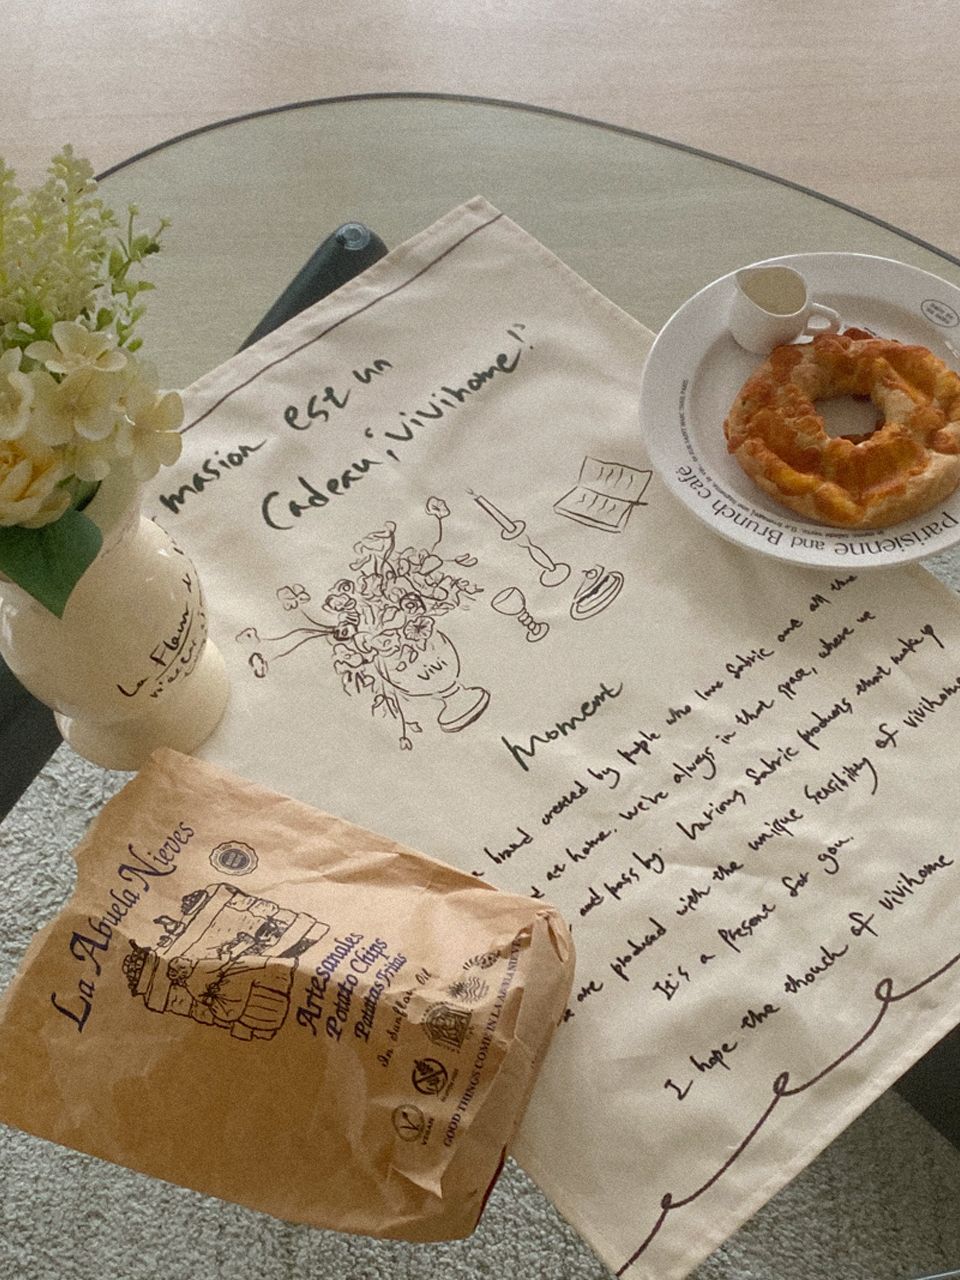 masion est un
Cadeau, 'vivihome!'
vivi
Moment
brand created by people who love fabric and all the
at home. we're always in that space, where we
and pass by. Various fabric products that make up
are produced with the unique sensibility of vivihome
It's a present for you.
I hope the thouch of vivihome
La Fleur
Parisienne and Brunch café
La Abuela Nieves
Artesanales
Potato Chips
Patatas Fritas
In Sunflor Oil
VEGAN
GOOD THINGS COME IN LA